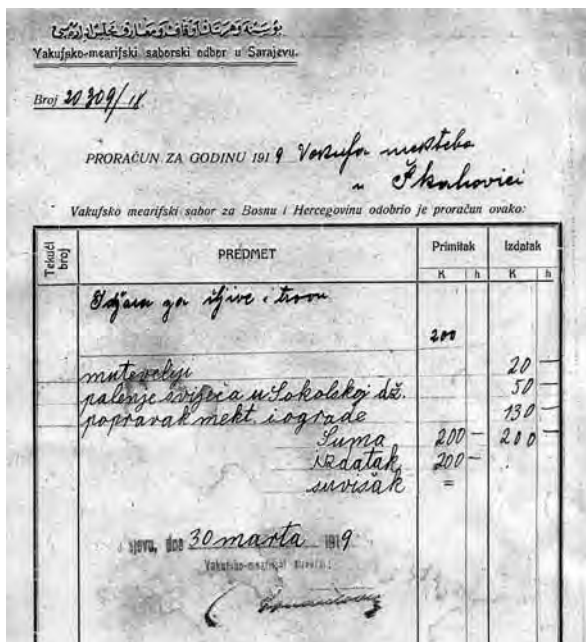 Vakufsko-mearifski saborski odbor u Sarajevu.
Broj 20309/18
PRORAČUN ZA GODINU 1919 Vakufa mekteba
u Škahovici
Vakufsko mearifski sabor za Bosnu i Hercegovinu odobrio je proračun ovako:
Tekući broj PREDMET Primitak Izdatak
K h K h
za šljive i travu
200
muteveliji 20 —
palenje svijeća u Sokolskoj dž. 50 —
popravak mekt. i ograde 130 —
Suma 200 — 200 —
izdatak 200 —
suvišak =
dne 30 marta 1919